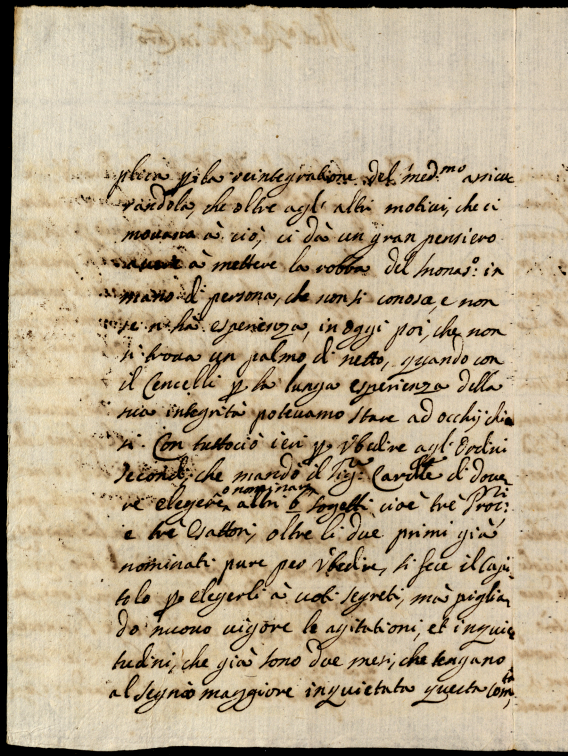 plica p la reintegratione del med.mo assicu
randola, che oltre agl' altri motivi, che ci
movano à ciò, ci dà un gran pensiero
à mettere la robba del monas.o in
mano di persona, che non si conosce, e non
se n' ha esperienza, in oggi poi, che non
si trova un palmo di netto, quando con
il Cencelli p la lunga esperienza della
sua integrità potevamo stare ad occhij chiu
si. Con tuttociò ieri p vbedire agl' Ordini
secondi, che mandò il Sig.r Card.le di dove
re elegere o nominare altri 6 sogetti cioè trè Proc.ri
e trè Esattori, oltre li due primi già
nominati pure per vbedire, si fece il Capi
tolo p elegerli à voti segreti, mà piglia
do nuovo vigore le agitationi, et inquie
tudini, che già sono due mesi, che tengano
al segno maggiore inquietata questa Com.tà